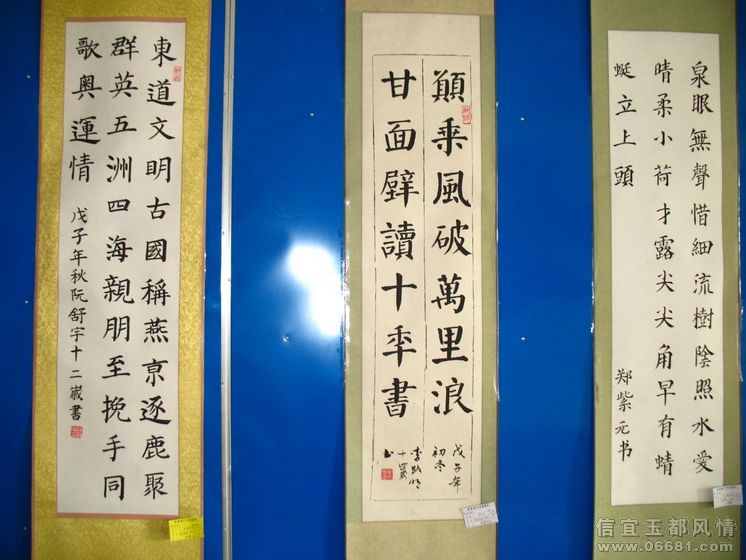 東道文明古國稱燕京逐鹿聚
群英五洲四海親朋至挽手同
歌奧運情
戊子年秋阮舒宇十二歲書
願乘風破萬里浪
甘面壁讀十年書
戊子年
初冬
十四歲
书
泉眼無聲惜細流樹陰照水愛
晴柔小荷才露尖尖角早有蜻
蜓立上頭
郑紫元书
信宜玉都风情
www.06681.com